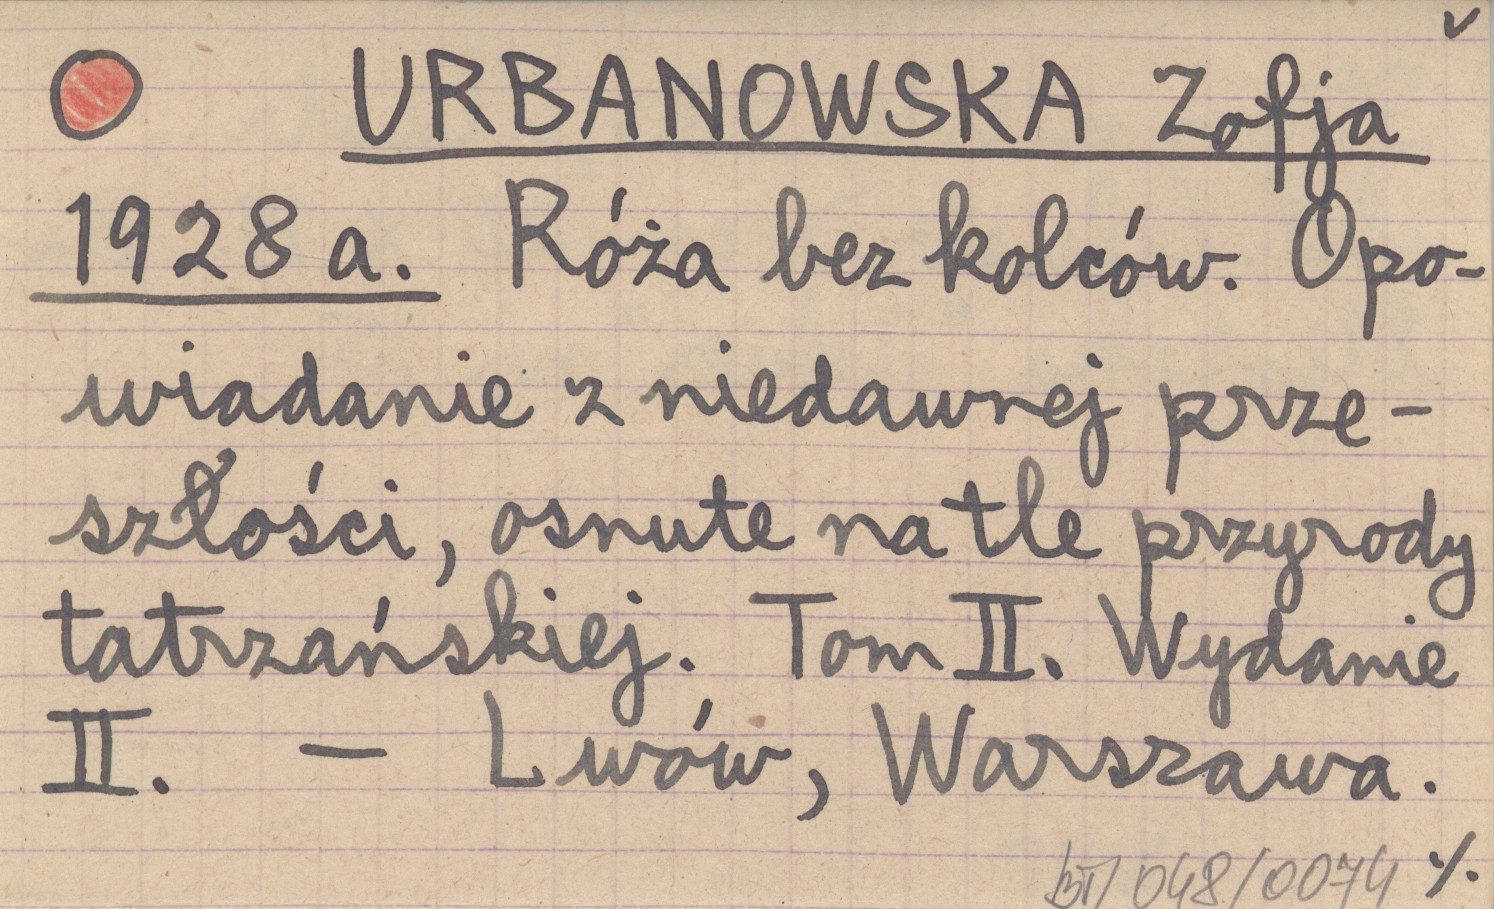 v
URBANOWSKA Zofja
1928 a. Róża bez kolców. Opo-
wiadanie z niedawnej prze-
szłości, osnute na tle przyrody
tatrzańskiej. Tom II. Wydanie
II. — Lwów, Warszawa.
BT/048/0074 ·/.